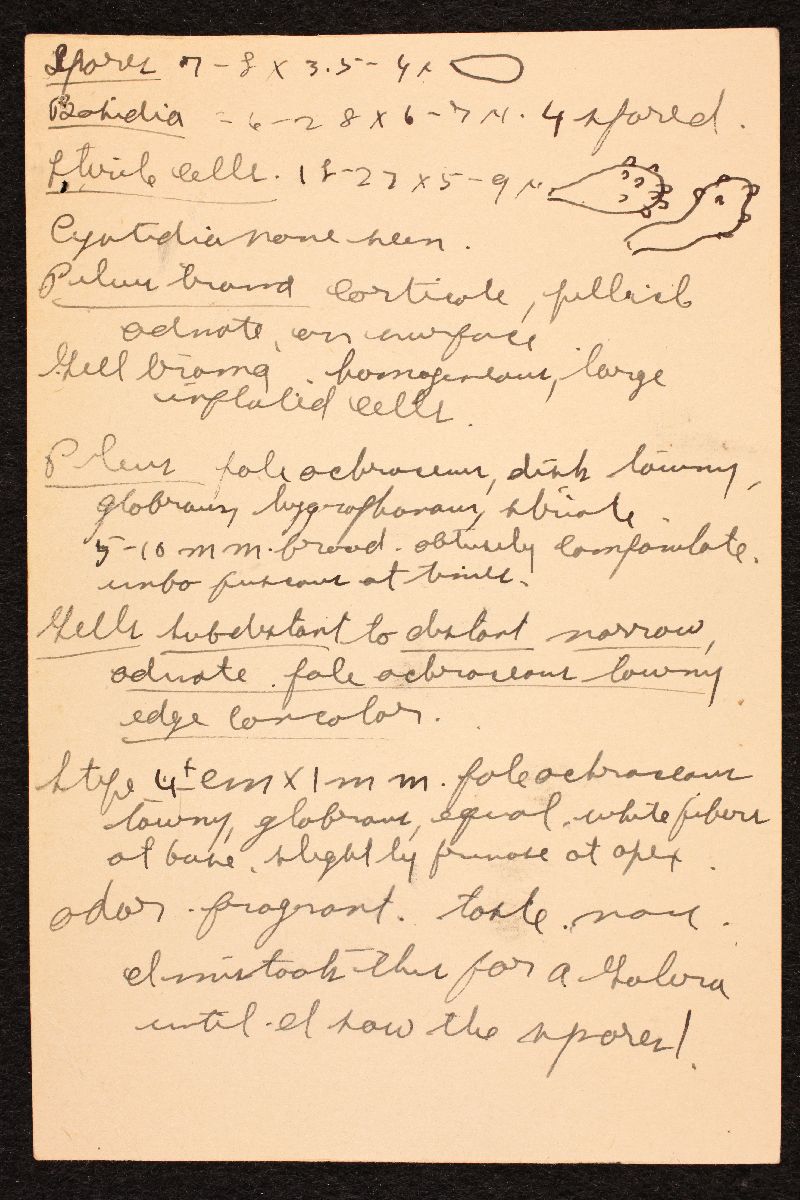 Spores 7-8 x 3.5-4 μ
Basidia 26-28 x 6-7 μ. 4 spored.
Sterile cells. 18-27 x 5-9 μ
Cystidia none seen.
Pileus trama corticate, pellicle
adnate, on surface
Gill trama homogeneous, large
inflated cells.
Pileus pale ochraceous, disk tawny,
glabrous, hygrophanous, striate
5-10 mm. broad. obtusely campanulate.
umbo fuscous at times.
Gills subdistant to distant narrow,
adnate. pale ochraceous tawny
edge concolor.
Stipe 4± cm x 1 mm. pale ochraceous
tawny, glabrous, equal. white fibers
at base. slightly pruinose at apex.
odor. fragrant. taste. none.
I mistook this for a Galera
until I saw the spores!